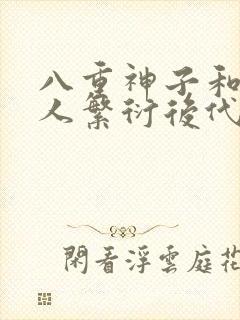 八重神子和
人繁衍後代
閑看浮雲庭花